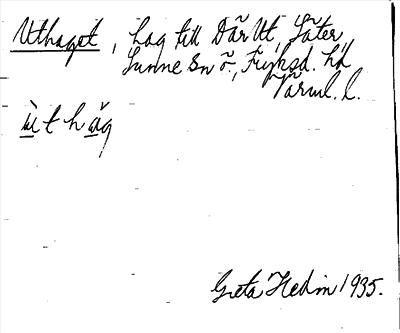 Uthaget, hag till Där Ut, Säter,
Sunne sn ö., Fryksd. hd
Värml. l.
ùt hăg
Greta Hedin 1935.